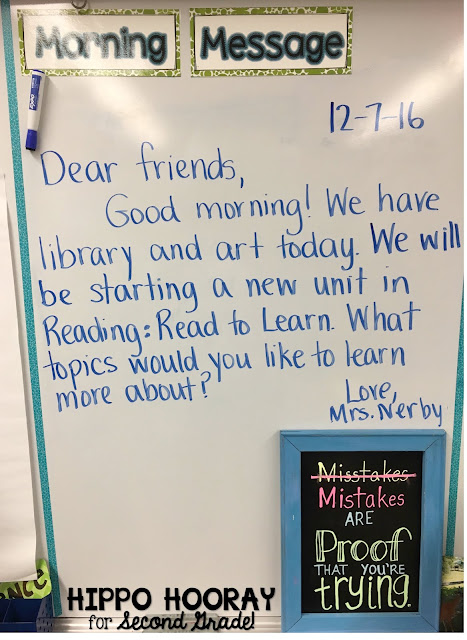 Morning Message
12-7-16
Dear friends,
Good morning! We have
library and art today. We will
be starting a new unit in
Reading: Read to Learn. What
topics would you like to learn
more about?
Love,
Mrs. Nerby
Misstakes
Mistakes
ARE
Proof
THAT YOU'RE
trying.
HIPPO HOORAY
for Second Grade!